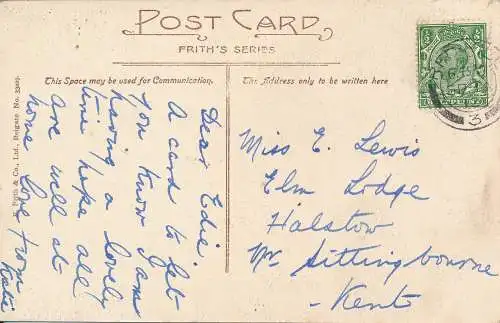 POST CARD
FRITH'S SERIES
This Space may be used for Communication.
The Address only to be written here
F. Frith & Co., Ltd., Reigate. No.
Dear Edie.
A card to let
you know I am
having a lovely
time hope all
are well at
home Love from
Kate
Miss E. Lewis
Elm Lodge
Halstow
Nr Sittingbourne
- Kent
3